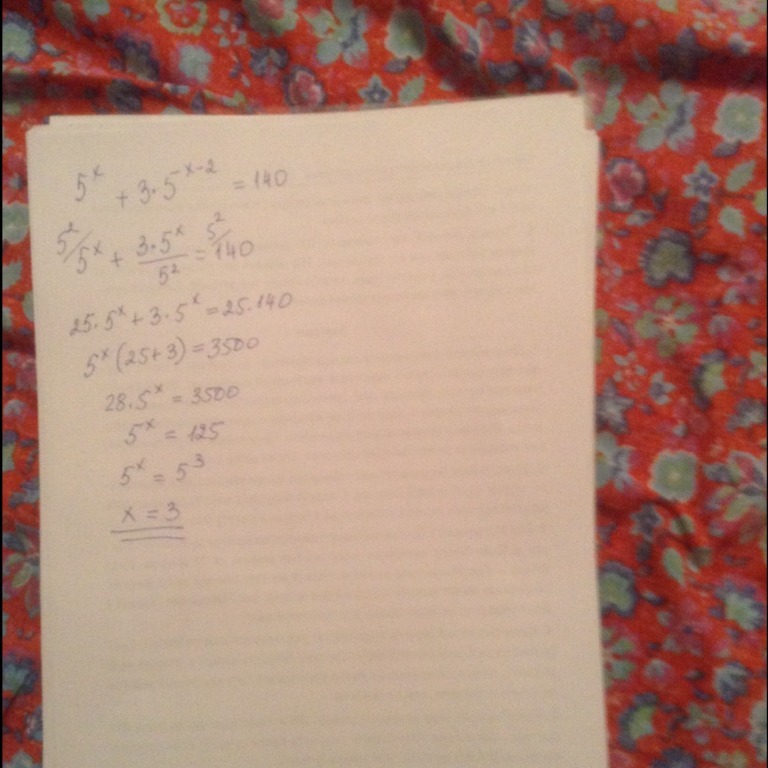 5^x + 3·5^(x-2) = 140
5²/ 5^x + (3·5^x)/5² = 5²/ 140
25·5^x + 3·5^x = 25·140
5^x (25+3) = 3500
28·5^x = 3500
5^x = 125
5^x = 5³
x = 3